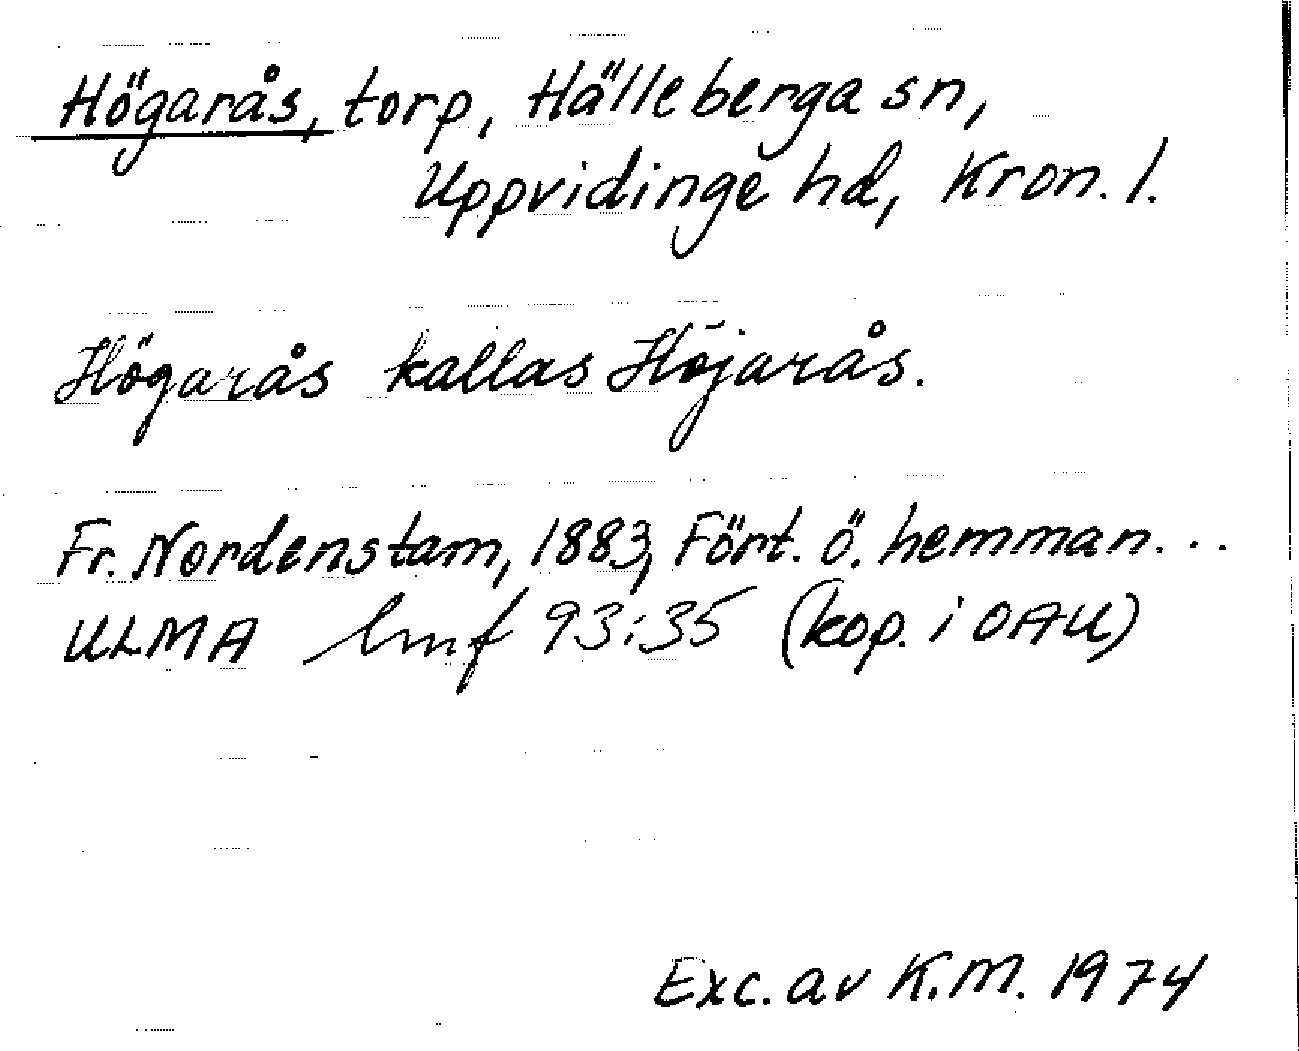 Högarås, torp, Hälleberga sn,
Uppvidinge hd, Kron. l.
Högarås kallas Höjarås.
Fr. Nordenstam, 1883, Fört. ö. hemman...
ULMA lmf 93:35 (kop. i OAU)
Exc. av K.M. 1974